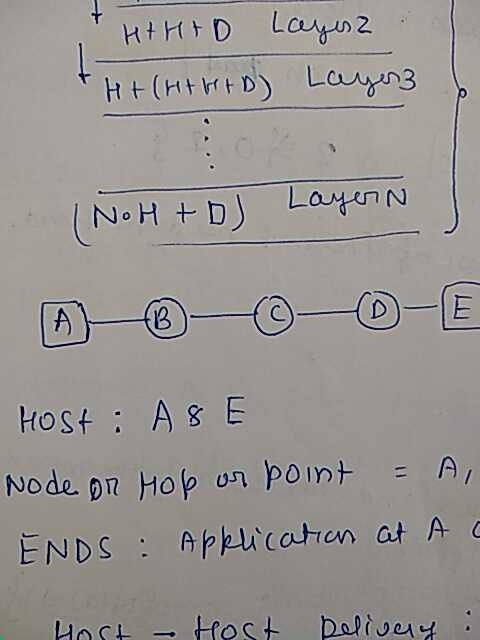 H+H+D Layer2
H+(H+H+D) Layer3
(N·H + D) Layer N
A B C D E
Host : A & E
Node or Hop or point = A,
ENDS : Application at A
Host → Host Delivery :